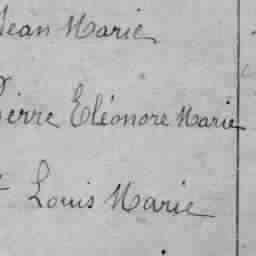 Jean Marie
Pierre Eléonore Marie
Louis Marie